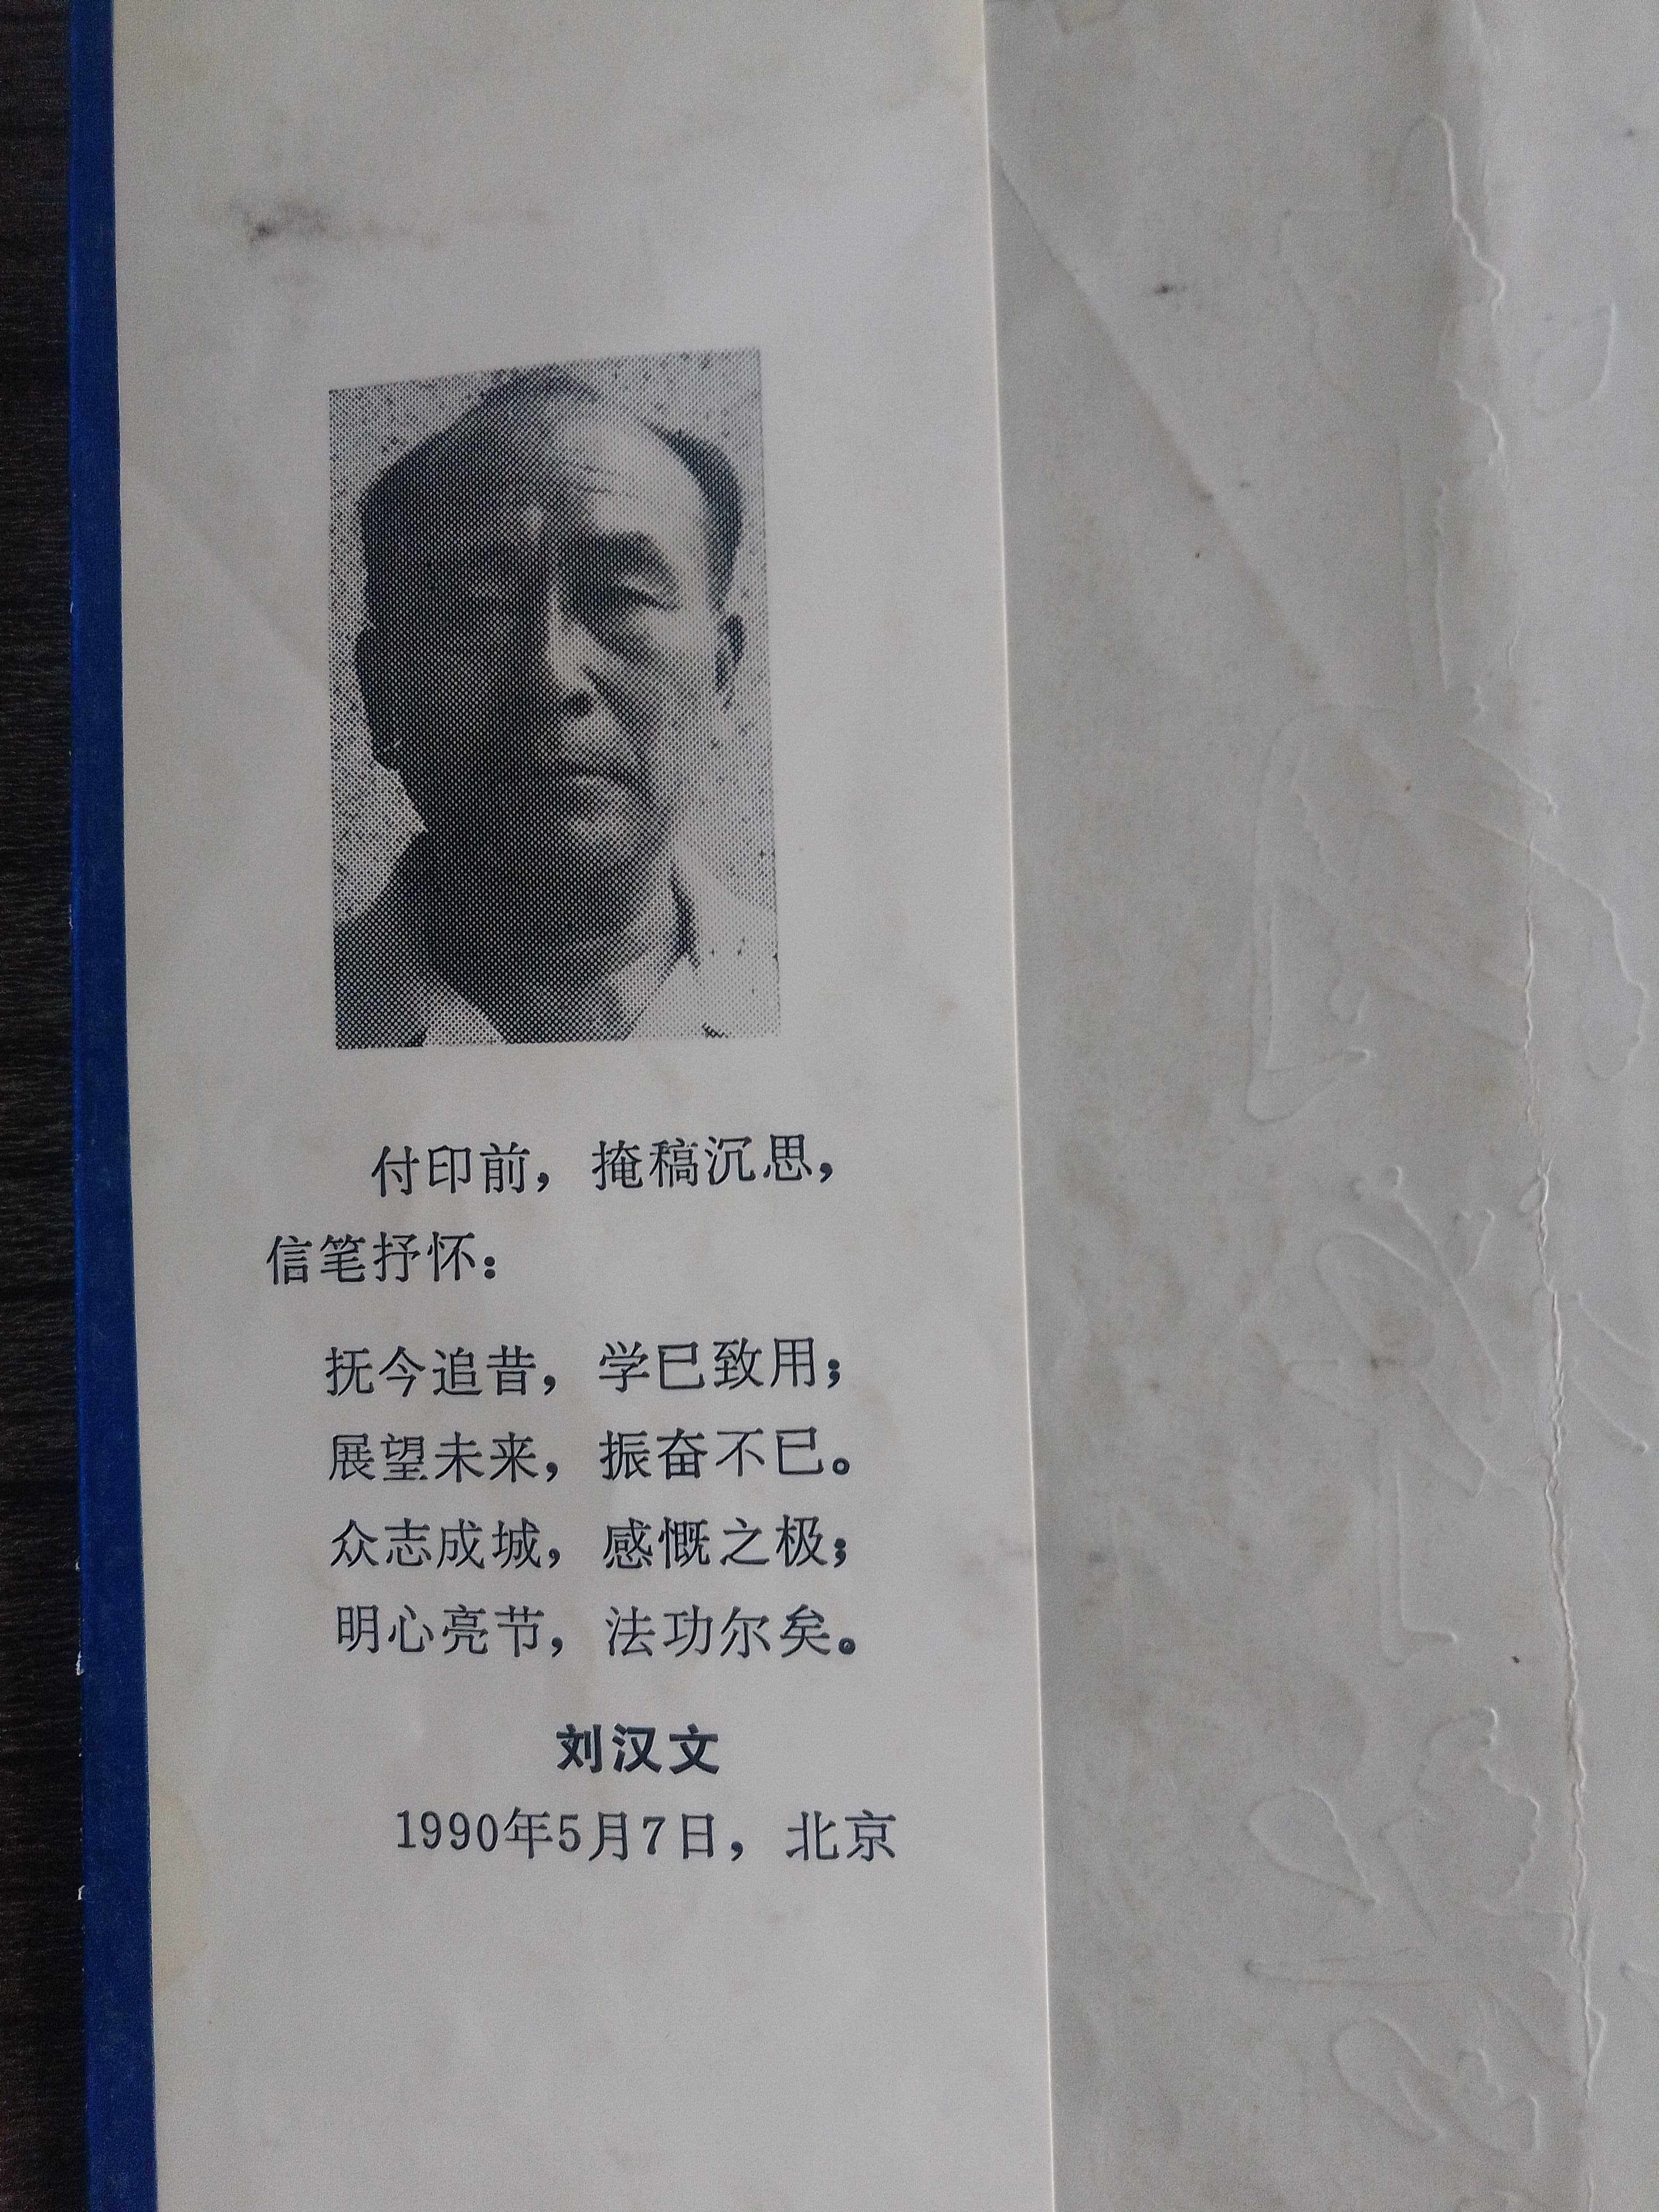 付印前，掩稿沉思，
信笔抒怀：
抚今追昔，学已致用；
展望未来，振奋不已。
众志成城，感慨之极；
明心亮节，法功尔矣。
刘汉文
1990年5月7日，北京